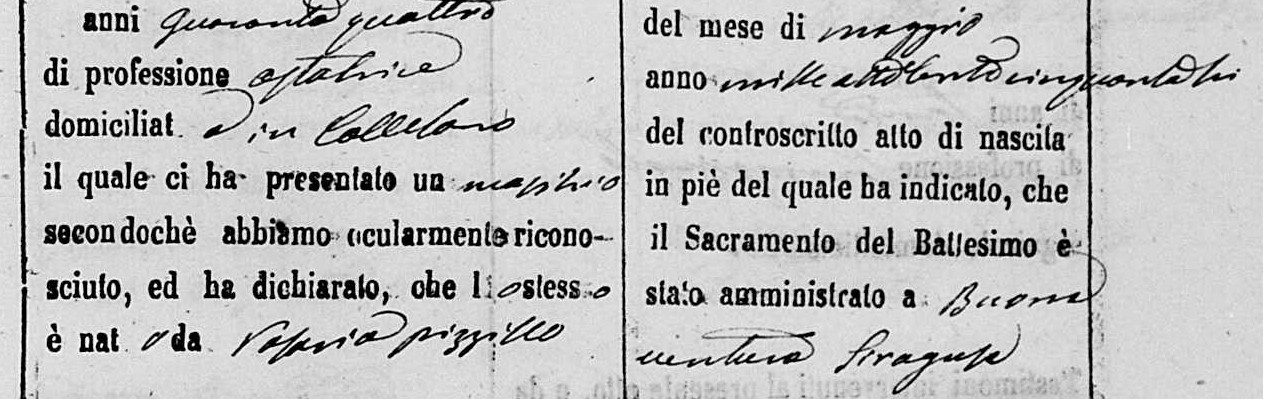 anni quaranta quattro
di professione ostatrice
domiciliat a in Collesano
il quale ci ha presentato un maschio
secondochè abbiamo ocularmente ricono-
sciuto, ed ha dichiarato, che lo stesso
è nat o da pizzillo
del mese di maggio
anno mille ottocento cinquanta
del controscritto atto di nascita
in piè del quale ha indicato, che
il Sacramento del Battesimo è
stato amministrato a Buona
ventura Siragusa